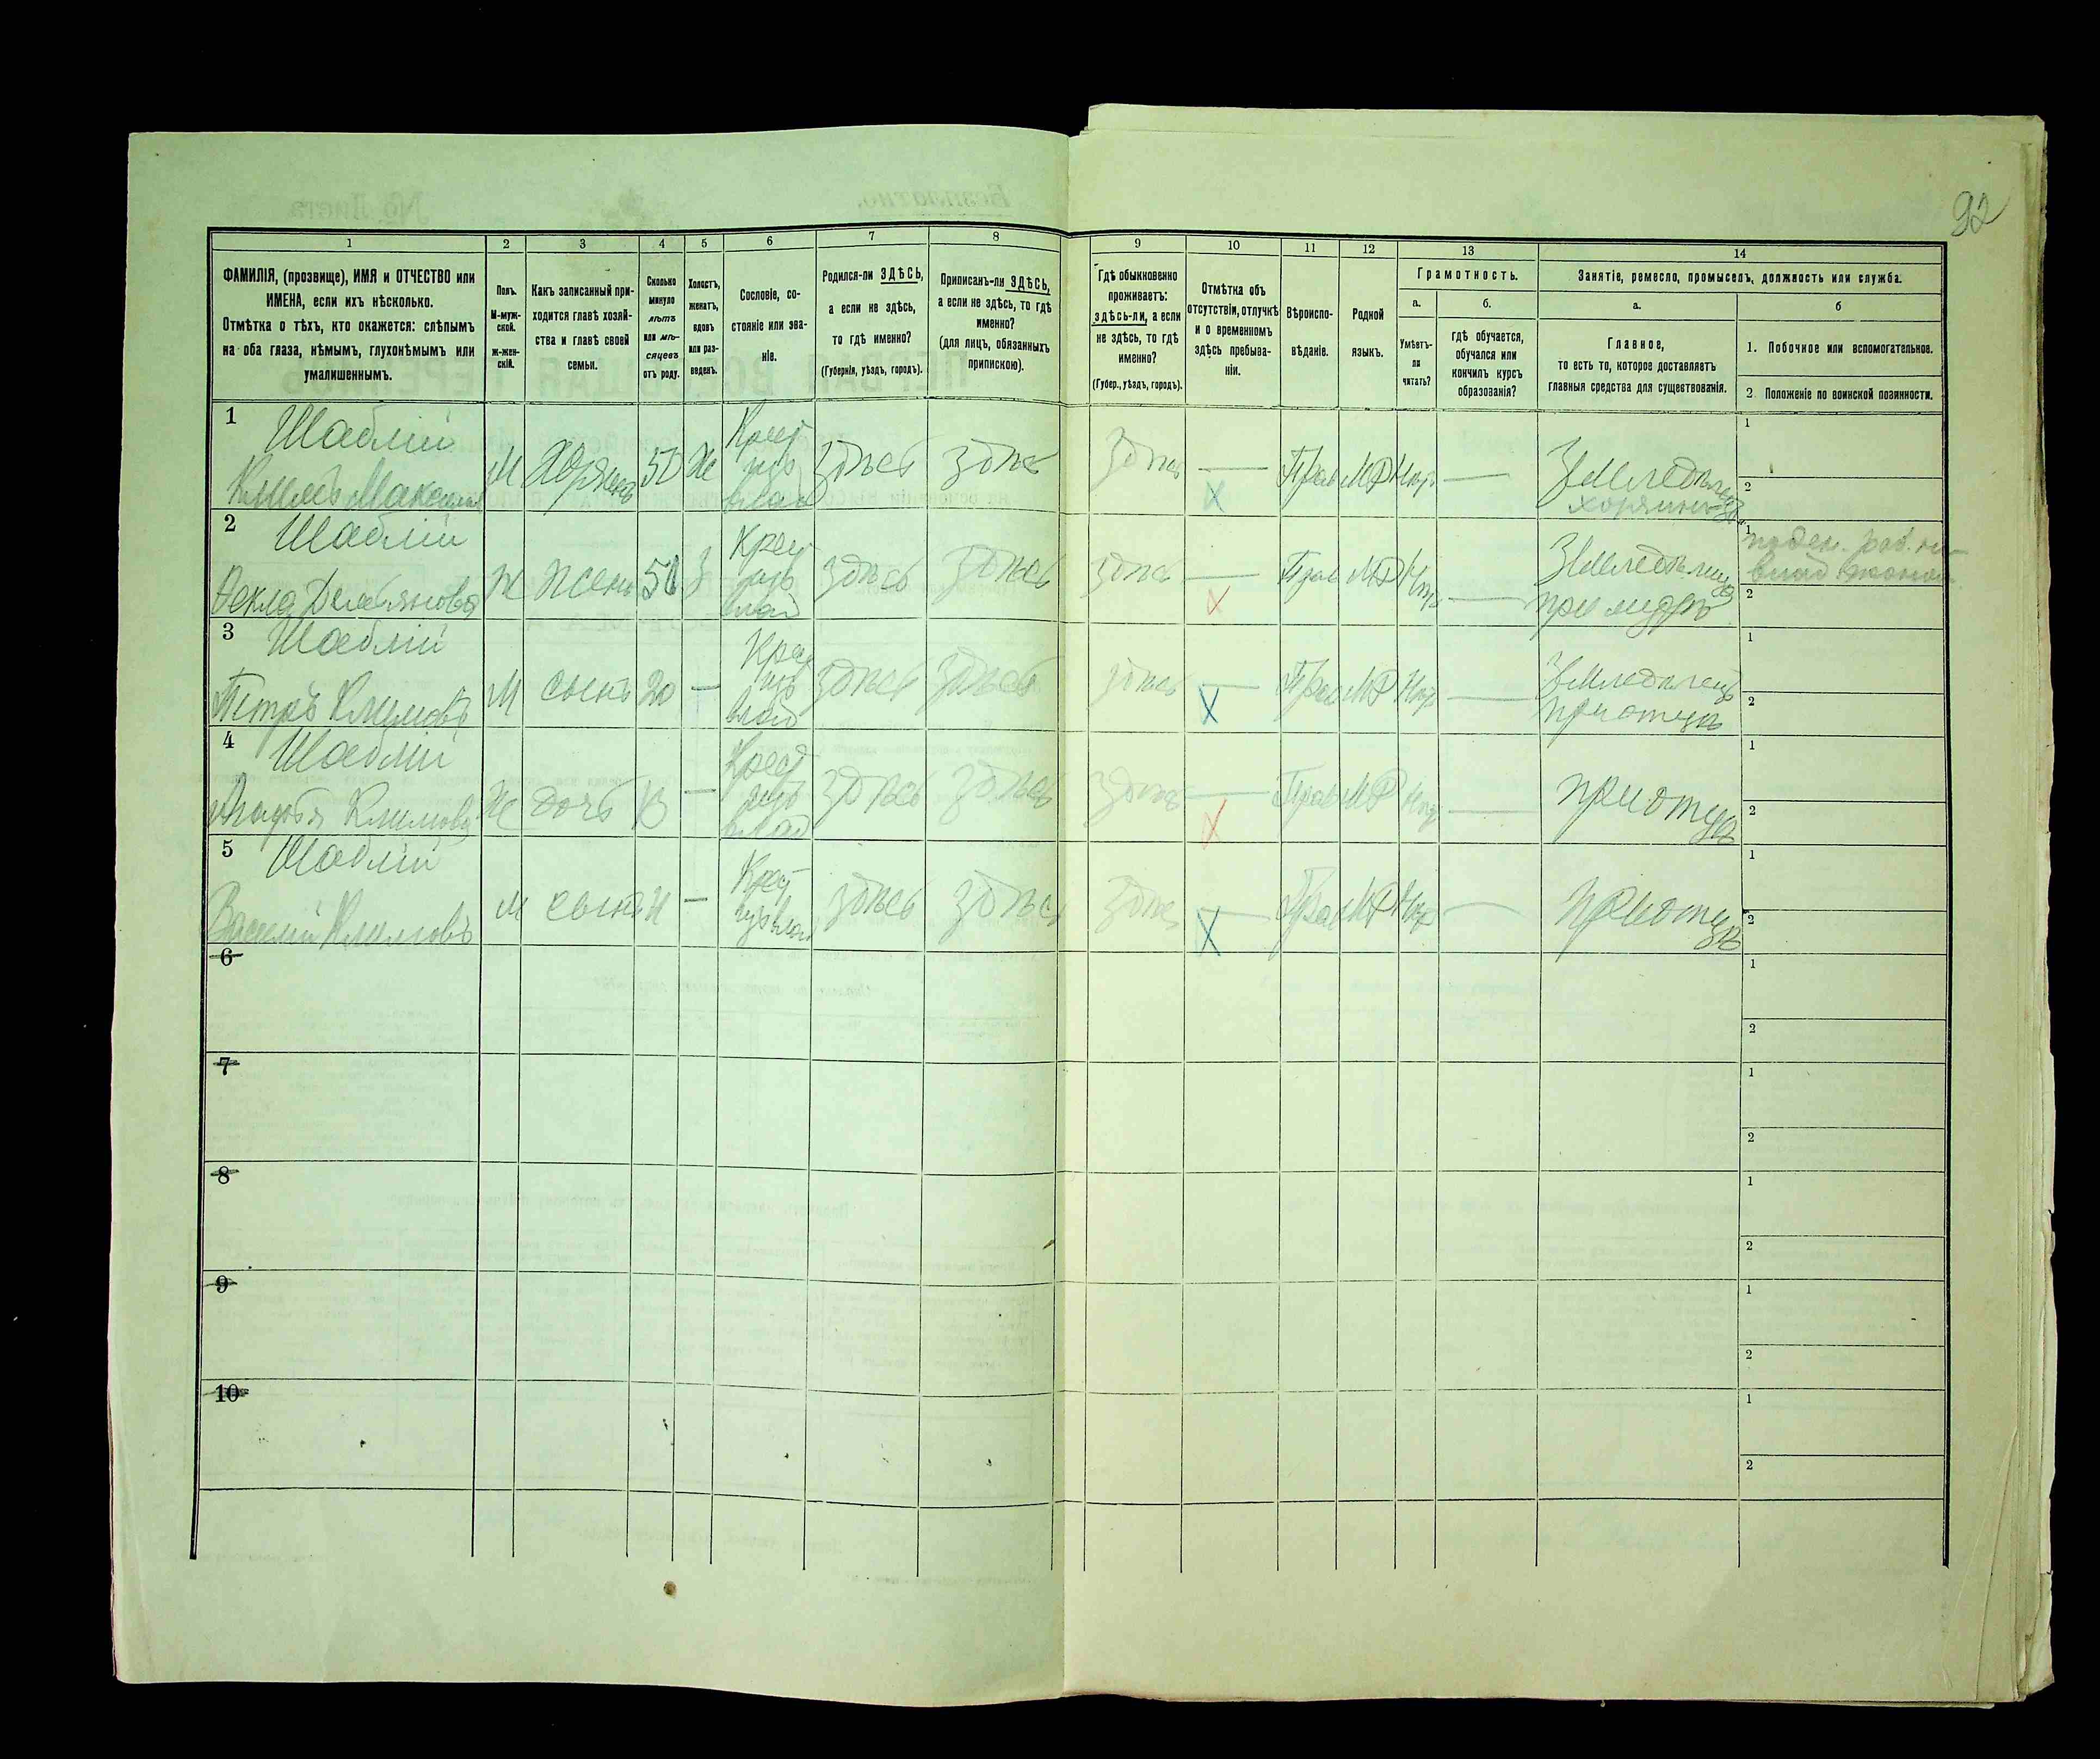 92
1 2 3 4 5 6 7 8 9 10 11 12 13 14
ФАМИЛІЯ, (прозвище), ИМЯ и ОТЧЕСТВО или
ИМЕНА, если ихъ нѣсколько.
Отмѣтка о тѣхъ, кто окажется: слѣпымъ
на оба глаза, нѣмымъ, глухонѣмымъ или
умалишеннымъ.
Полъ.
М-муж-
ской.
ж-жен-
скій.
Какъ записанный при-
ходится главѣ хозяй-
ства и главѣ своей
семьи.
Сколько
минуло
лѣтъ
или мѣ-
сяцевъ
отъ роду.
Холостъ,
женатъ,
вдовъ
или раз-
веденъ.
Сословіе, со-
стояніе или зва-
ніе.
Родился-ли ЗДѢСЬ,
а если не здѣсь,
то гдѣ именно?
(Губернія, уѣздъ, городъ).
Приписанъ-ли ЗДѢСЬ,
а если не здѣсь, то гдѣ
именно?
(для лицъ, обязанныхъ
припискою).
Гдѣ обыкновенно
проживаетъ:
здѣсь-ли, а если
не здѣсь, то гдѣ
именно?
(Губер., уѣздъ, городъ).
Отмѣтка объ
отсутствіи, отлучкѣ
и о временномъ
здѣсь пребыва-
ніи.
Вѣроиспо-
вѣданіе.
Родной
языкъ.
Грамотность.
а.
Умѣетъ-
ли
читать?
б.
гдѣ обучается,
обучался или
кончилъ курсъ
образованія?
Занятіе, ремесло, промыселъ, должность или служба.
а.
Главное,
то есть то, которое доставляетъ
главныя средства для существованія.
б
1. Побочное или вспомогательное.
2. Положеніе по воинской повинности.
1 Шаблій
Климъ
М 50 Ж
Крест
изъ
влад
здѣсь здѣсь здѣсь — Прав МР —
Земледѣлецъ
хозяинъ
1
2
2 Шаблій
Фекла Демьянова
Ж жена
Крест
изъ
влад
здѣсь здѣсь здѣсь — Прав МР —
1
2
3 Шаблій
Петръ Климовъ
М сынъ 20 —
Крест
изъ
влад
здѣсь здѣсь здѣсь — Прав МР —
Земледѣлецъ
при отцѣ
1
2
4 Шаблій
Агафья Климова
Ж дочь —
Крест
изъ
влад
здѣсь здѣсь здѣсь — Прав МР —
при отцѣ
1
2
5 Шаблій
Василій Климовъ
М сынъ —
Крест
изъ влад
здѣсь здѣсь здѣсь — Прав МР —
при отцѣ
1
2
6
1
2
7
1
2
8
1
2
9
1
2
10
1
2